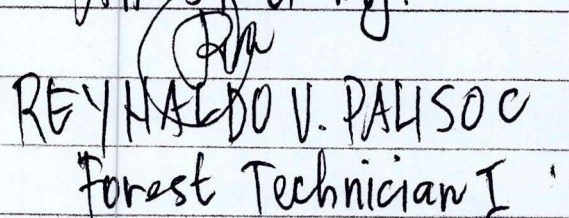 REYNALDO V. PALISOC
Forest Technician I